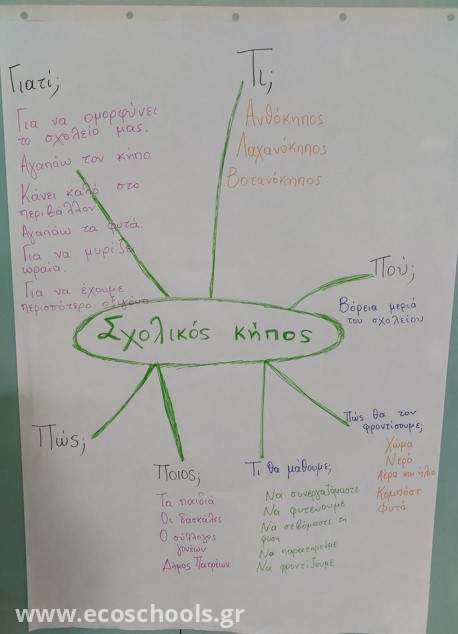 Γιατί;
Για να ομορφύνει
το σχολείο μας.
Αγαπάω τον κήπο
Κάνει καλό στο
περιβάλλον
Αγαπάω τα φυτά.
Για να μυρίζει
ωραία.
Για να έχουμε
περισσότερο οξυγόνο
Τι;
Ανθόκηπος
Λαχανόκηπος
Βοτανόκηπος
Πού;
Βόρεια μεριά
του σχολείου
Σχολικός κήπος
Πώς;
Ποιος;
Τα παιδιά
Οι δασκάλες
Ο σύλλογος
γονέων
Δήμος Πατρέων
Τι θα μάθουμε;
Να συνεργαζόμαστε
Να φυτεύουμε
Να σεβόμαστε τη
φύση
Να παρατηρούμε
Να φροντίζουμε
Πώς θα τον
φροντίσουμε;
Χώμα
Νερό
Αέρα και ήλιο
Κομπόστ
Φυτά
www.ecoschools.gr